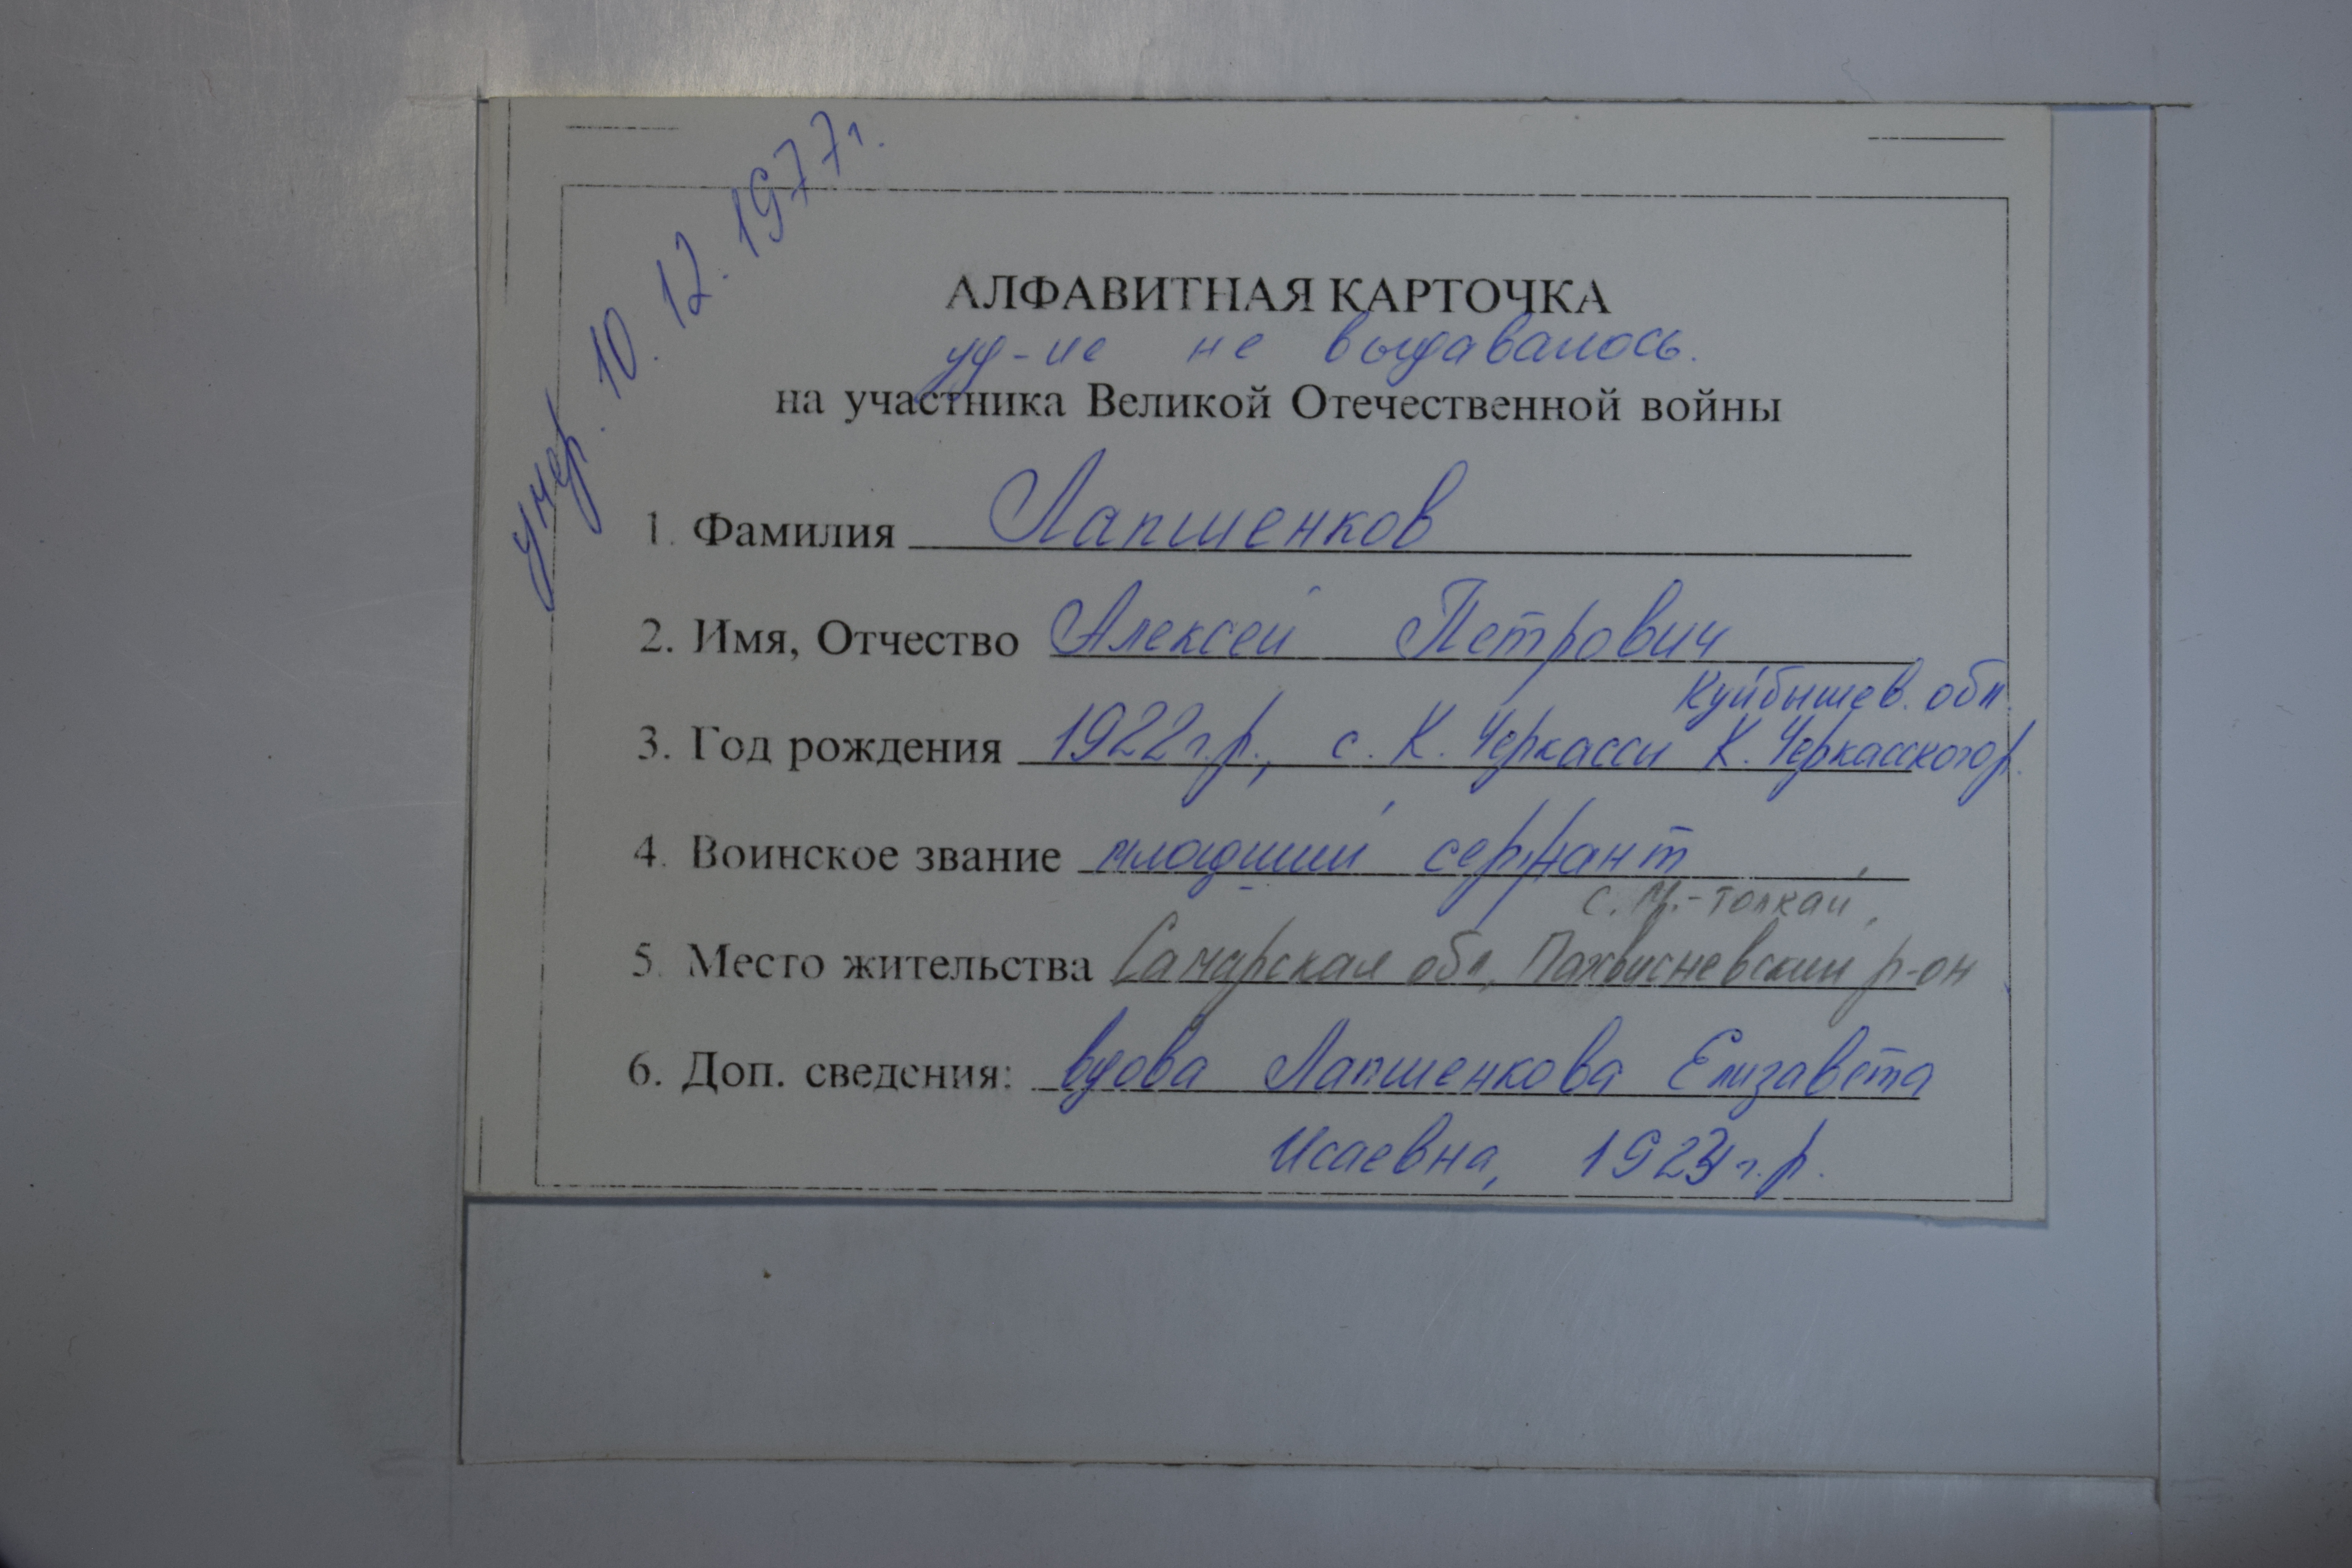 умер. 10. 12. 1977г.
АЛФАВИТНАЯ КАРТОЧКА
уд-ие не выдавалось.
на участника Великой Отечественной войны
1. Фамилия Лапшенков
2. Имя, Отчество Алексей Петрович
Куйбышев. обл.
3. Год рождения 1922г.р., с. К. Черкассы К. Черкасского р.
4. Воинское звание младший сержант
с. М.-Толкай,
5. Место жительства Самарская обл, Похвисневский р-он
6. Доп. сведения: вдова Лапшенкова Елизавета
Исаевна, 1923г.р.